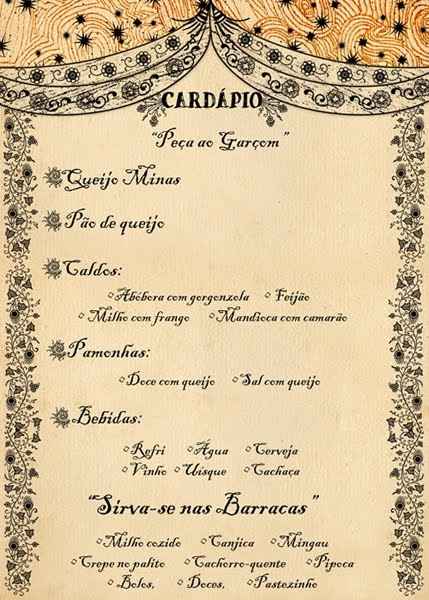 CARDÁPIO
"Peça ao Garçom"
Queijo Minas
Pão de queijo
Caldos:
Abóbora com gorgonzola Feijão
Milho com frango Mandioca com camarão
Pamonhas:
Doce com queijo Sal com queijo
Bebidas:
Refri Água Cerveja
Vinho Uísque Cachaça
"Sirva-se nas Barracas"
Milho cozido Canjica Mingau
Crepe no palito Cachorro-quente Pipoca
Bolos, Doces, Pastezinho